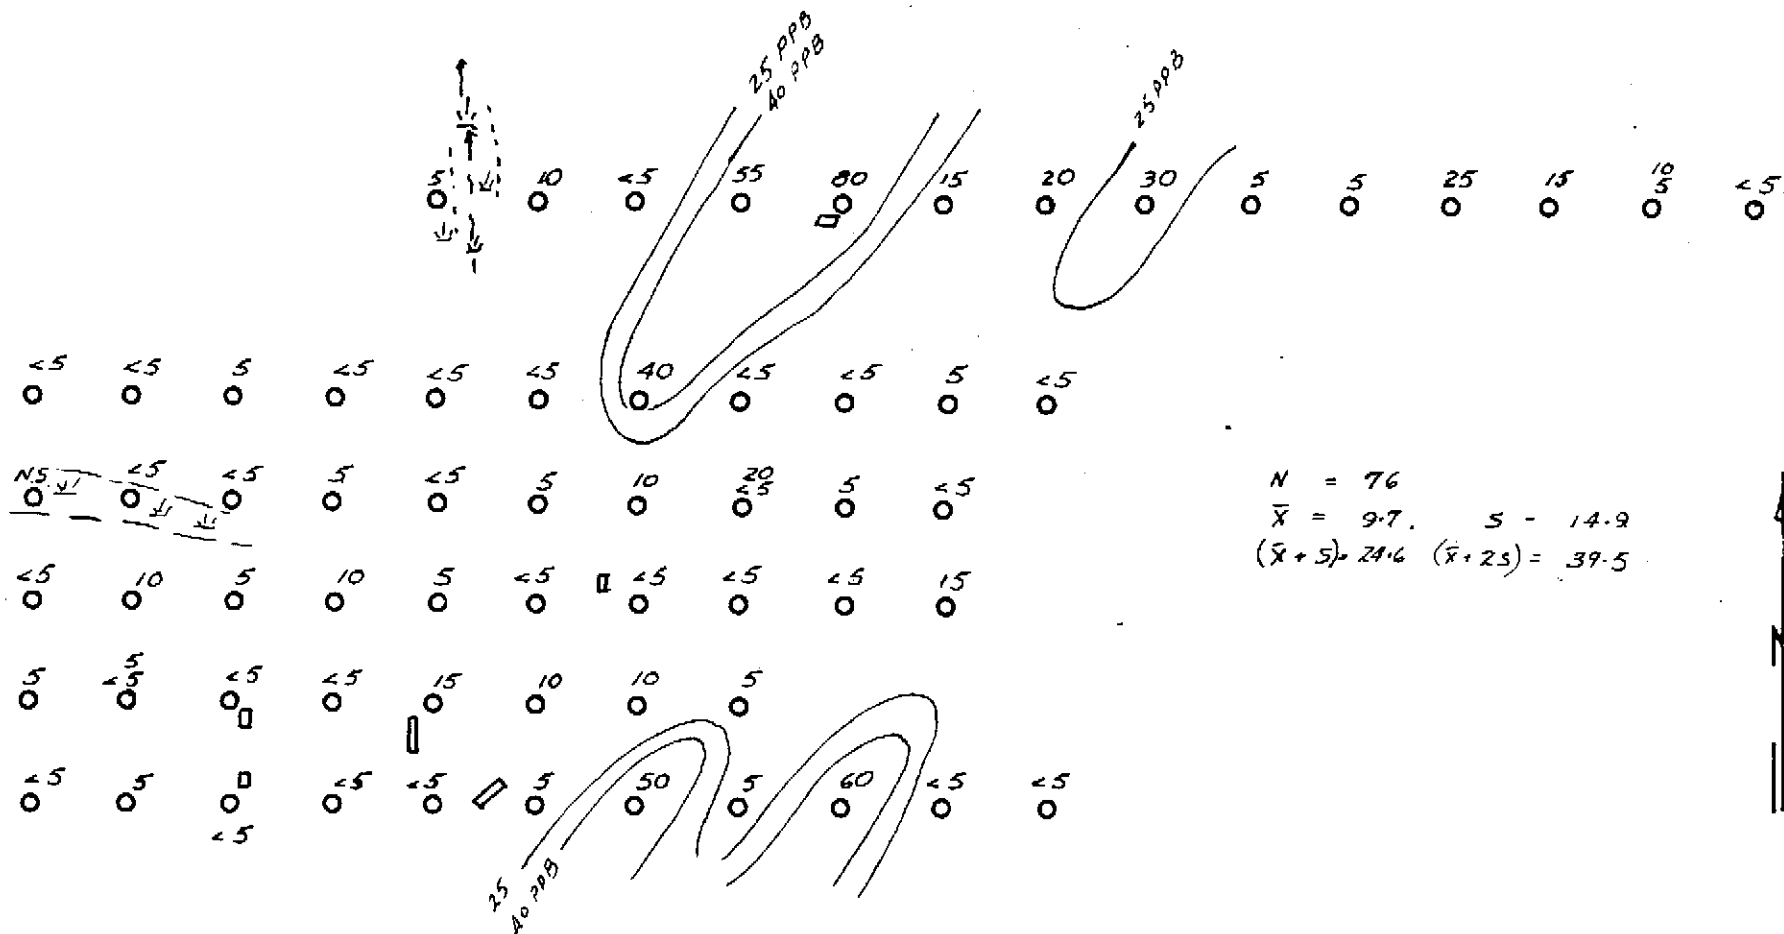 25 PPB
40 PPB
25 PPB
5 10 <5 55 80 15 20 30 5 5 25 15 10 <5
5
<5 <5 5 <5 <5 <5 40 <5 <5 5 <5
NS <5 <5 5 <5 5 10 20 5 <5
<5
<5 10 5 10 5 <5 <5 <5 <5 15
5 5 <5 <5 15 10 10 5
<5
<5 5 <5 <5 5 50 5 60 <5 <5
<5
25
40 PPB
N = 76
X̄ = 9.7. S - 14.9
(X̄ + S) = 24.6 (X̄ + 2S) = 39.5
N